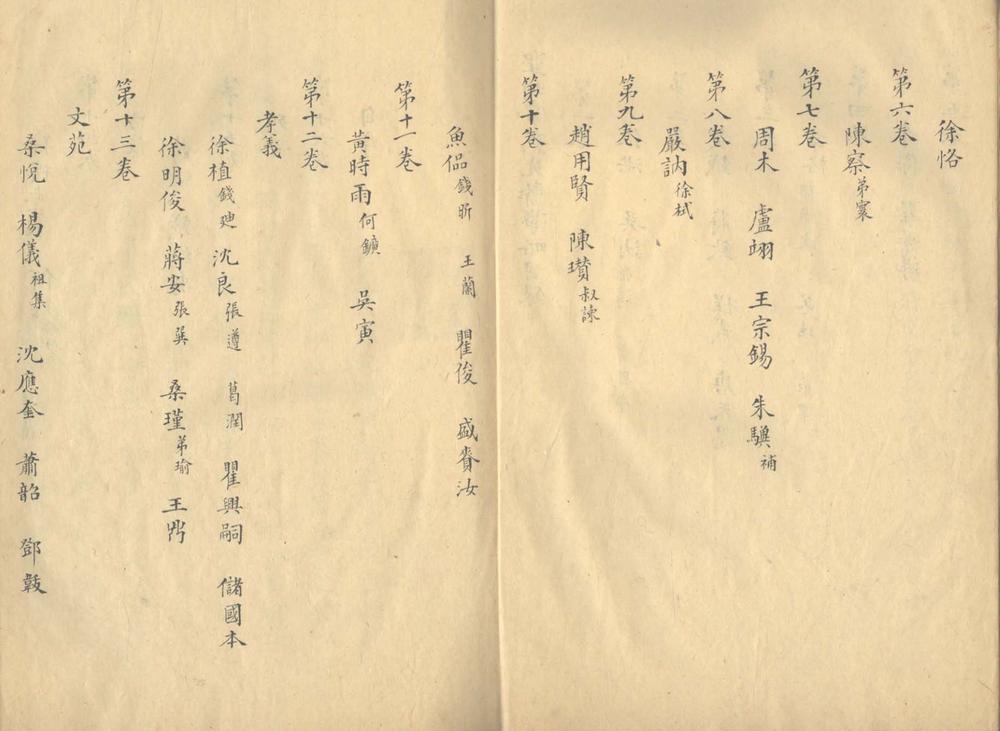 徐恪
第六卷
陳察 弟寰
第七卷
周木 盧翊 王宗錫 朱驥 補
第八卷
嚴訥 徐栻
第九卷
趙用賢 陳瓚 叔諫
第十卷
魚侃 錢昕 王蘭 瞿俊 盛賚汝
第十一卷
黃時雨 何鑛 吳寅
第十二卷
孝義
徐植 錢𨑳 沈良 張遵 葛潤 瞿興嗣 儲國本
徐明俊 蔣安 張巽 桑瑾 弟瑜 王
第十三卷
文苑
桑悅 楊儀 祖集 沈應奎 蕭韶 鄧韍